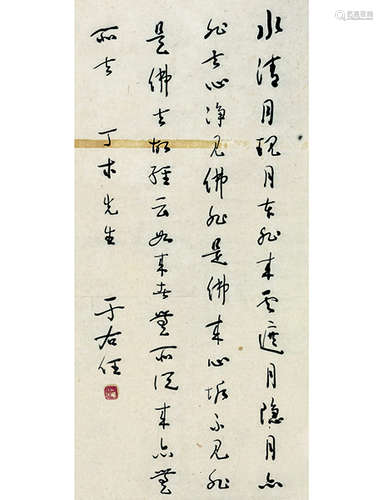 水清月現月本非來雲遮月隱月亦
非去心淨見佛非是佛來心垢不見非
是佛去故經云如來者無所從來亦無
所去 丁木先生 于右任